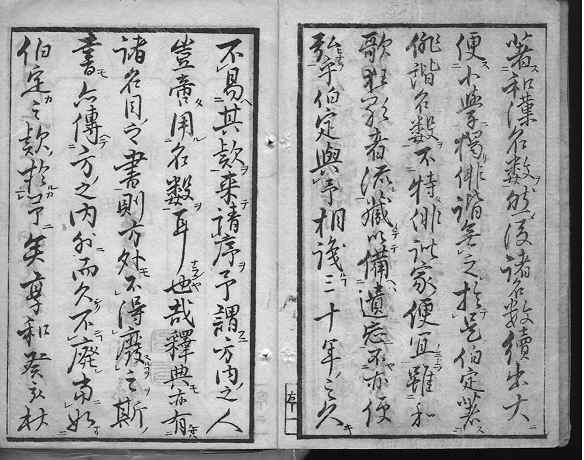 著和漢名数然後諸名数續出大
便小学独俳諧無之於是伯定著
俳諧名数不特俳諧家便宜雖和
歌狂歌者流蔵以備遺忘不亦便
乎伯定與予相識三十年之久
不易其歓来請序予謂方内之人
豈啻用名数耳也哉釋典亦有
諸名目之書則方外不得廢之斯
書亦傳方之内外而久不廢當如
伯定之歓於予矣享和癸亥秋